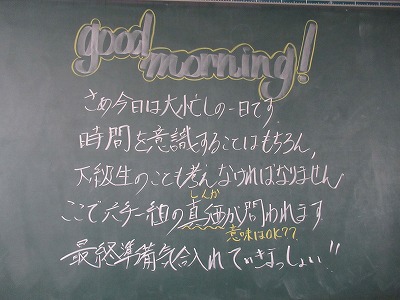 good
morning!
さぁ今日は大忙しの一日です。
時間を意識することはもちろん、
下級生のことも考えなければなりません
しんか
ここで六年一組の真価が問われます
意味はOK??
最終準備気合入れていきまっしょい!!